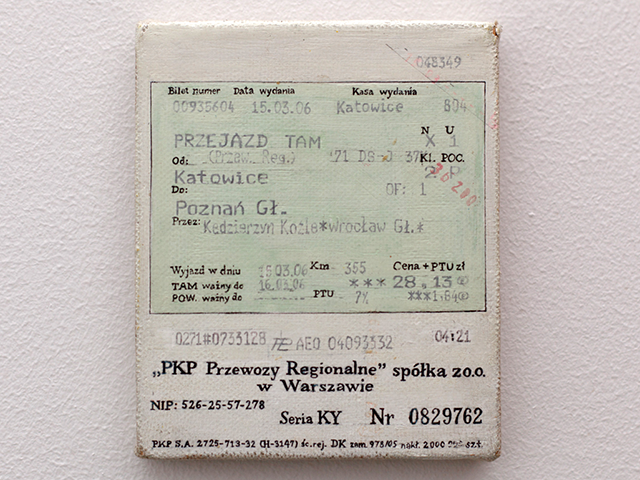 048349
Bilet numer Data wydania Kasa wydania
00935604 15.03.06 Katowice 804
N U
PRZEJAZD TAM X 1
Od: (Przew. Reg.) 171 DS-J 37% Kl. POC.
Katowice 2
Do: OF: 1
Poznań Gł.
Przez: Kędzierzyn Koźle*Wrocław Gł.*
Wyjazd w dniu 15.03.06 Km 355 Cena + PTU zł
TAM ważny do 16.03.06 ***28,13
POW. ważny do PTU 7% ***1.84
0271#0733128 AEO 04093332 04:21
„PKP Przewozy Regionalne” spółka zo.o.
w Warszawie
NIP: 526-25-57-278
Seria KY Nr 0829762
PKP S.A. 2725-713-32 (H-3147) śc.rej. DK zam. 978/05 nakł. 2000 szt.